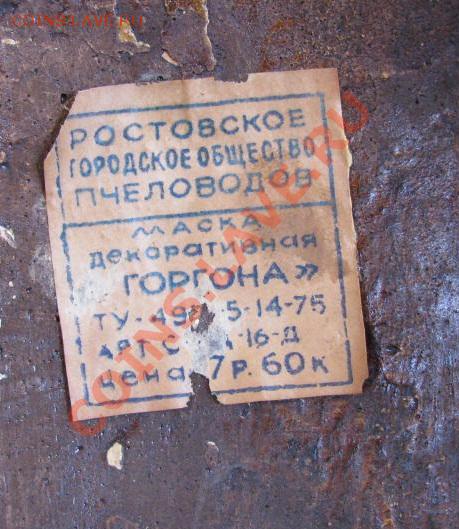 COINS.LAVE.RU
РОСТОВСКОЕ
ГОРОДСКОЕ ОБЩЕСТВО
ПЧЕЛОВОДОВ
МАСКА
декоративная
ГОРГОНА»
ТУ-49 5-14-75
АРТ -16-Д
цена 7р. 60к
COINS.LAVE.RU